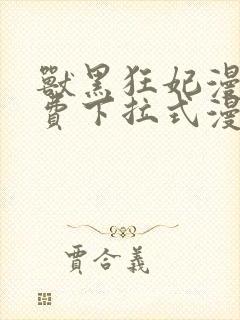 獸黑狂妃漫
費下拉式漫
賈合義